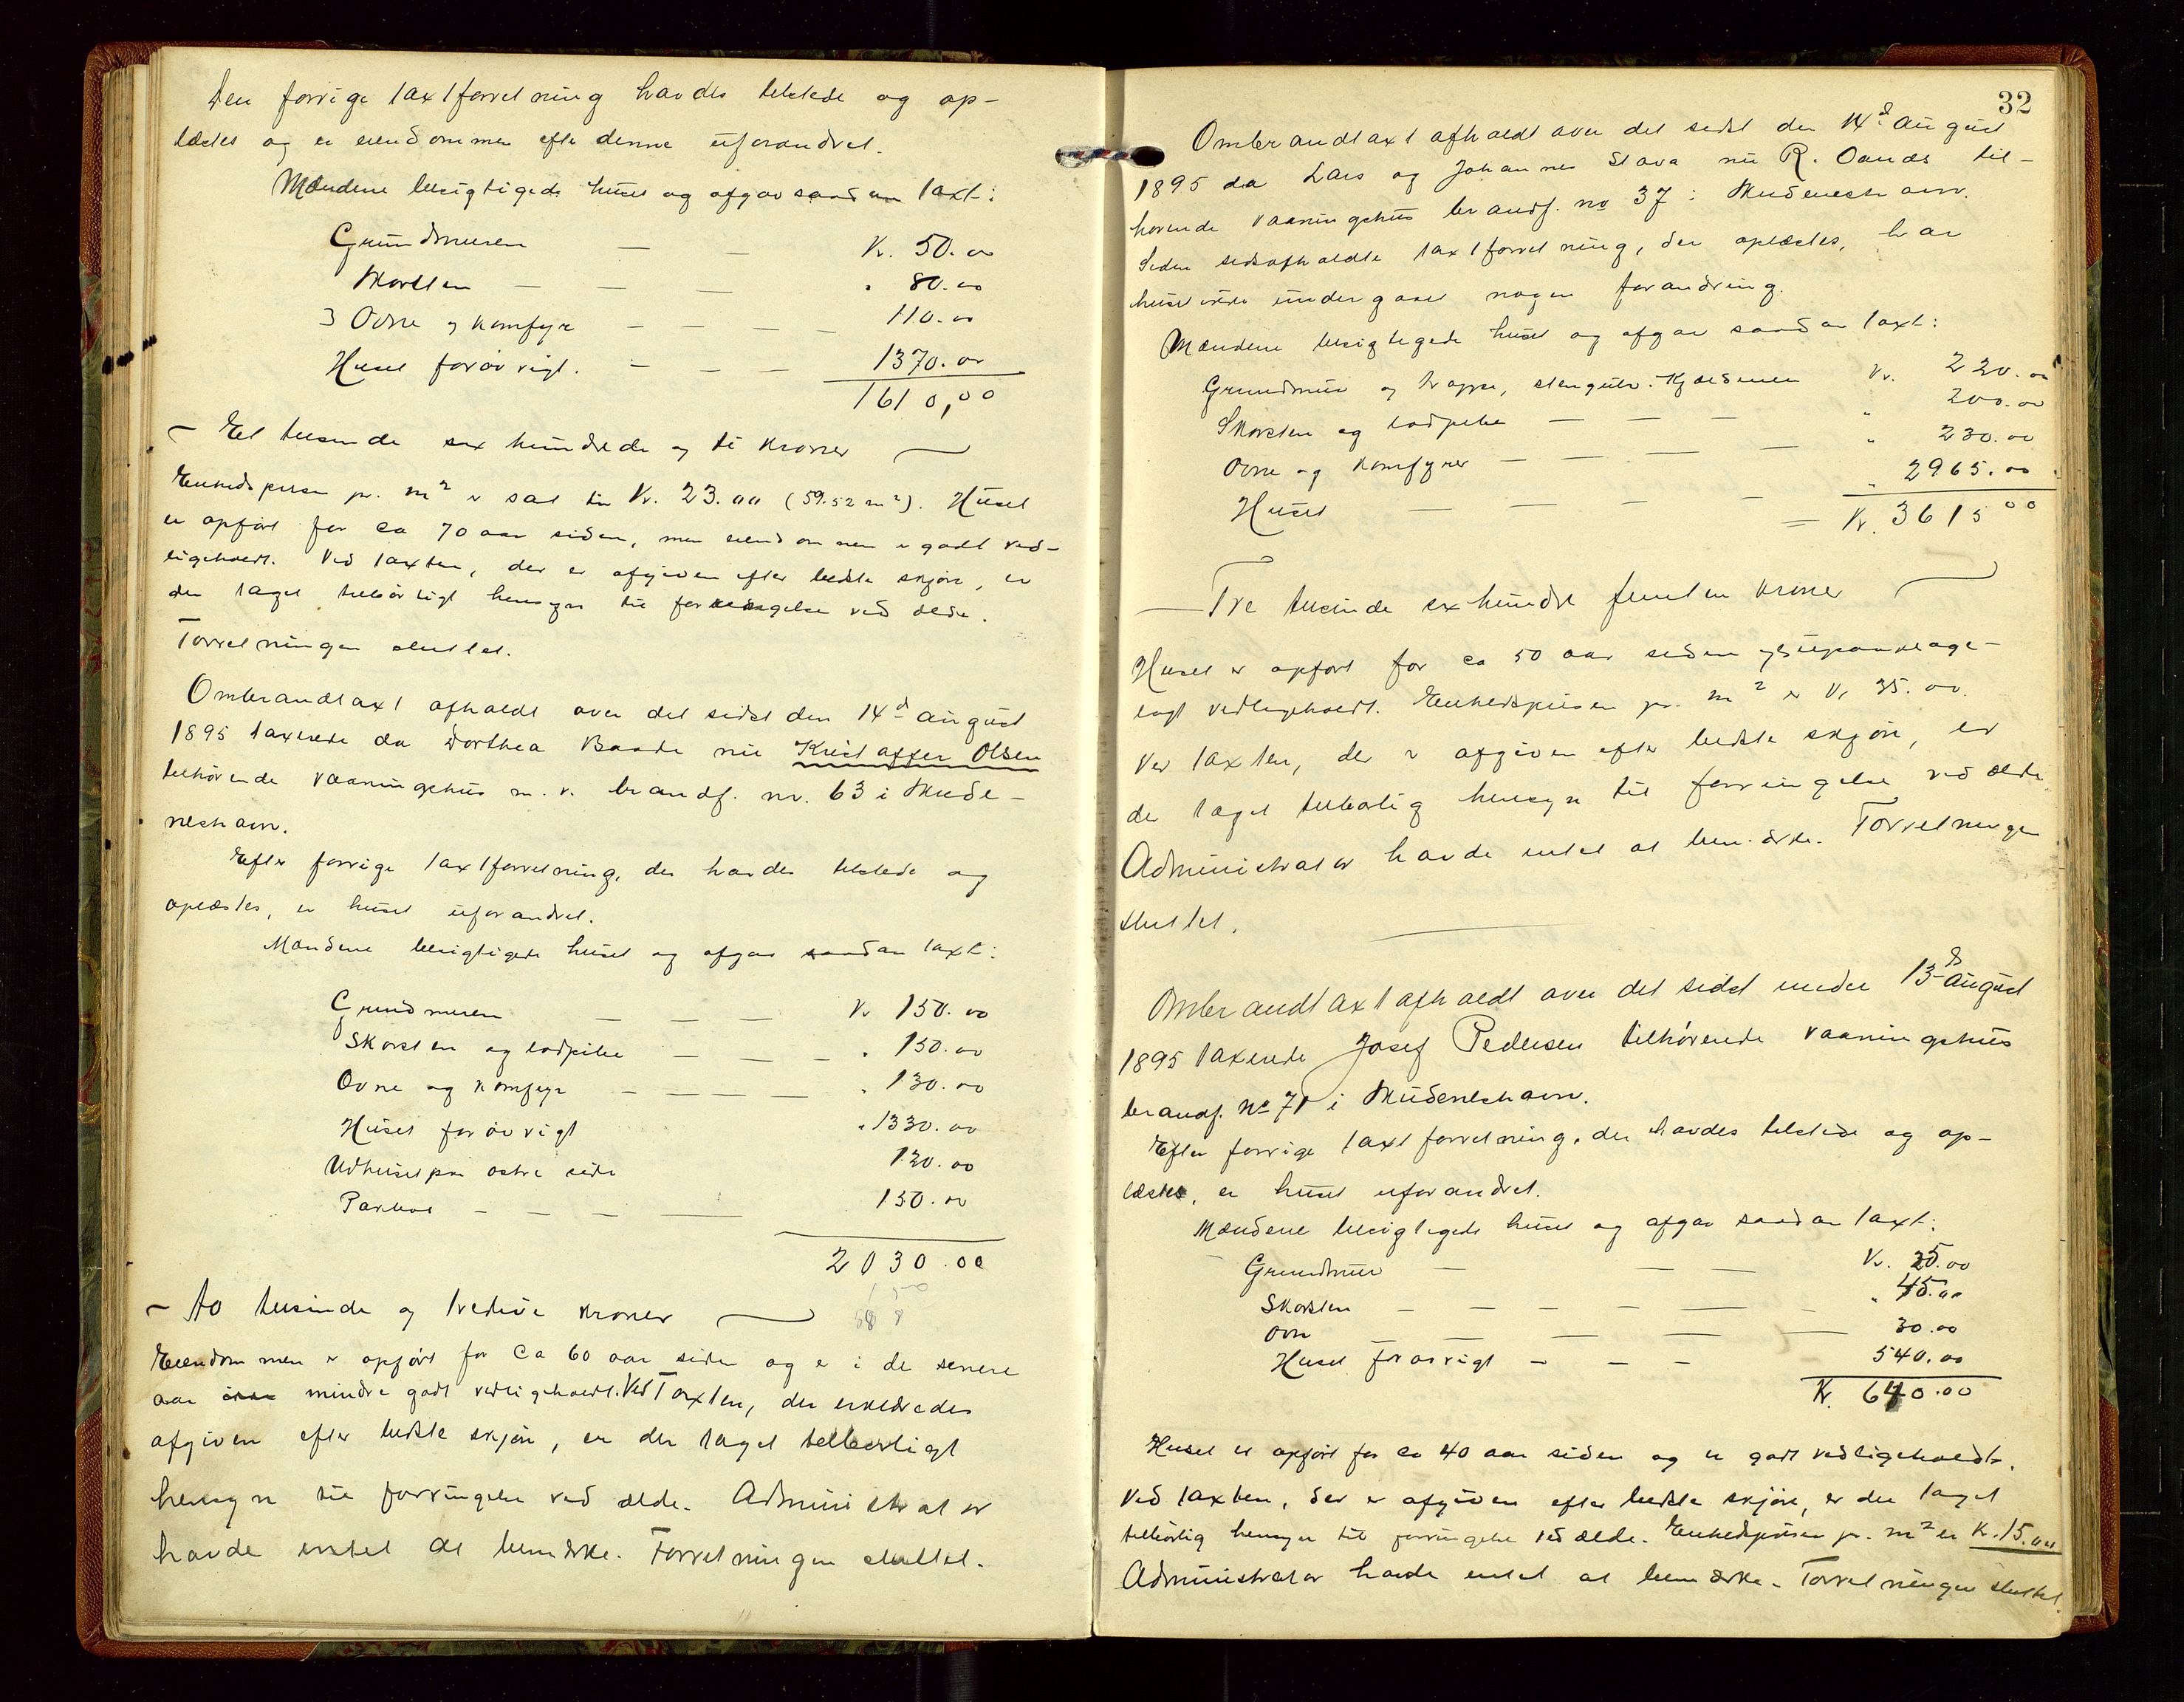 Den forrige taxtforretning havdes tilstede og op-
læstes og er eiendommen efter denne uforandret.
Mændene besigtigede huset og afgav saadan taxt:
Grundmuren — — Kr. 50.00
Skorsten — — — " 80.00
3 Ovne og komfyr — — — — 110.00
Huset forøvrigt. — — — 1370.00
1610,00
— Et tusinde sex hundrede og ti kroner —
Enhedsprisen pr. m² er sat til Kr. 23.00 (59.52 m²). Huset
er opført for ca 70 aar siden, men eiendommen er godt ved-
ligeholdt. Ved taxten, der er afgiven efter bedste skjøn, er
der taget tilbørligt hensyn til forringelse ved ælde.
Forretningen sluttet.
Ombrandtaxt afholdt over det sidst den 14d august
1895 taxerede da Dorthea Baade nu Kristoffer Olsen
tilhørende vaaningshus m. v. brandf. nr. 63 i Skude-
neshavn.
Efter forrige taxtforretning, der havdes tilstede og
oplæstes, er huset uforandret.
Mændene besigtigede huset og afgav saadan taxt:
Grundmuren — — — Kr 150.00
Skorsten og lodpibe — — — " 150.00
Ovne og komfyr — — — — " 130.00
Huset forøvrigt " 1330.00
Udhuset paa østre side 120.00
Pakbod — — — — 150.00
2030.00
150
— To tusinde og tredive kroner —
Eiendommen er opført for ca 60 aar siden og er i de senere
aar mindre godt vedligeholdt. Ved Taxten, der erklæredes
afgiven efter bedste skjøn, er der taget tilbørligt
hensyn til forringelse ved ælde. Administrator
havde intet at bemærke. Forretningen sluttet.
32
Ombrandtaxt afholdt over det sidst den 14d august
1895 da Lars og Johannes Stava nu R. Oanæs til-
hørende vaaningshus brandf. no 37 i Skudeneshavn.
Siden sidsafholdte taxtforretning, der oplæstes, har
huset ikke undergaaet nogen forandring.
Mændene besigtigede huset og afgav saadan taxt:
Grundmur og trappe, stengulv i Kjælderen Kr. 220.00
Skorsten og lodpibe — — — " 200.00
Ovne og komfyrer — — — — — " 230.00
Huset — — — — " 2965.00
= Kr. 3615 00
— Tre tusinde sexhundre femten kroner —
Huset er opført for ca 50 aar siden og upaaklage-
ligt vedligeholdt. Enhedsprisen pr. m² er Kr 35.00.
Ved taxten, der er afgiven efter bedste skjøn, er
der taget tilbørlig hensyn til forringelse ved ælde
Administrator havde intet at bemærke. Forretningen
sluttet.
Ombrandtaxt afholdt over det sidst under 13d august
1895 taxerede Josef Pedersen tilhørende vaaningshus
brandf. no 71 i Skudeneshavn.
Efter forrige taxtforretning, der havdes tilstede og op-
læstes, er huset uforandret.
Mændene besigtigede huset og afgav saadan taxt:
Grundmur — — — Kr. 25.00
Skorsten — — — — — — " 45.00
Ovn — — — — — 30.00
Huset forøvrigt — — — 540.00
Kr. 640.00
Huset er opført for ca 40 aar siden og er godt vedligeholdt.
Ved taxten, der er afgiven efter bedste skjøn, er der taget
tilbørlig hensyn til forringelse ved ælde. Enhedsprisen pr. m² er K. 15.00
Administrator havde intet at bemærke. Forretningen sluttet.